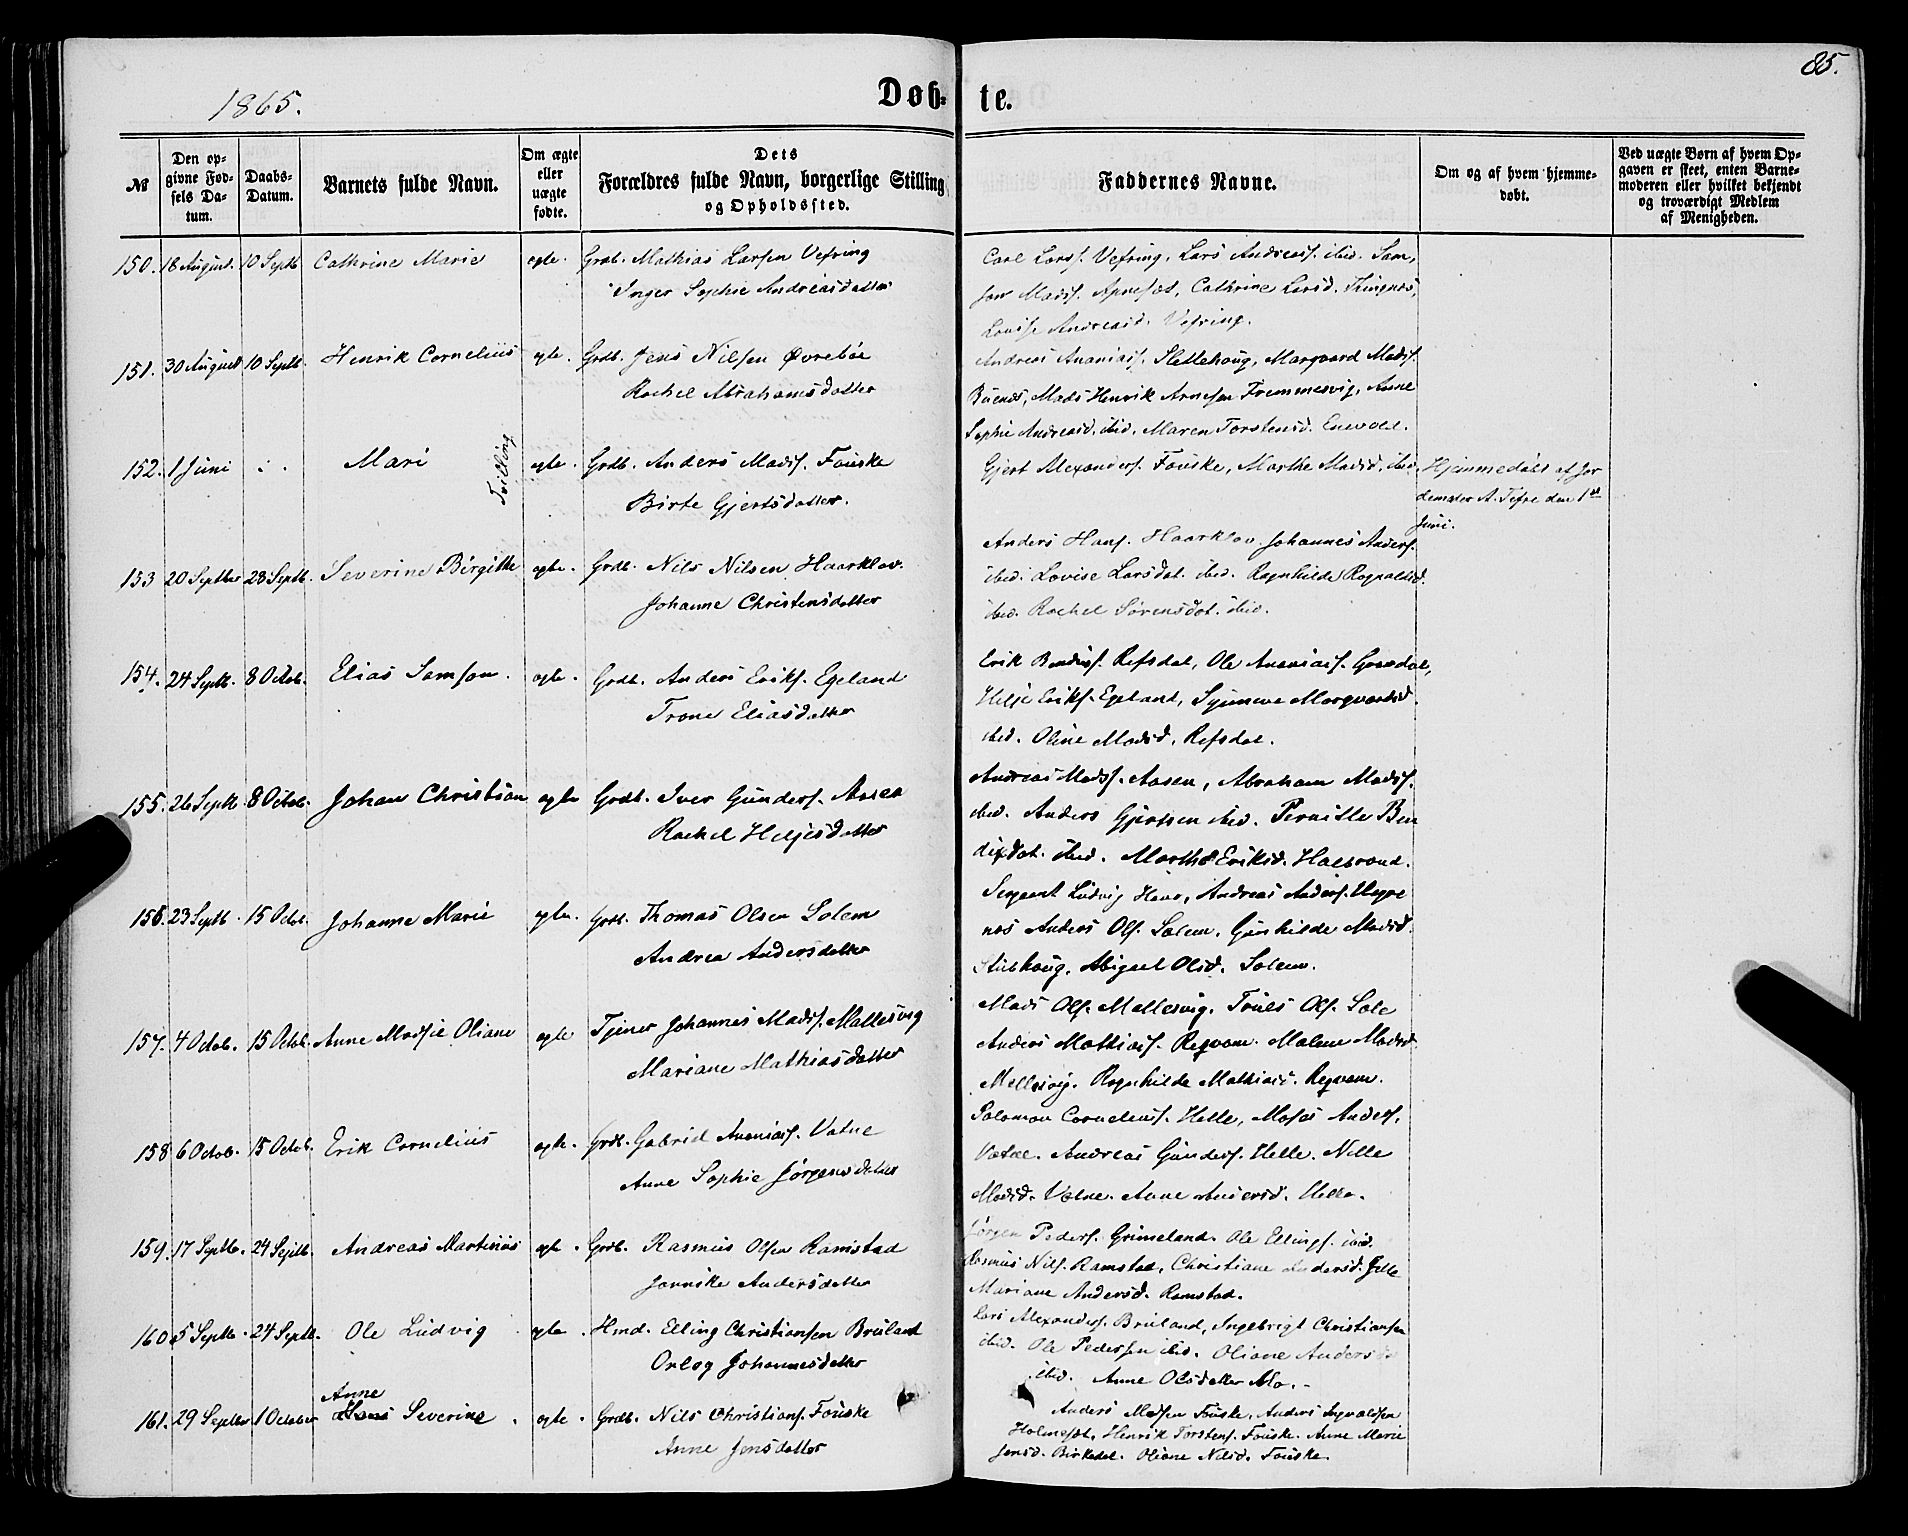 85.
1865.
Døb- te.
№
Den op-
givne Fød-
sels Da-
tum.
Daabs-
Datum.
Barnets fulde Navn.
Om ægte
eller
uægte
fødte.
Dets
Forældres fulde Navn, borgerlige Stilling
og Opholdssted.
Faddernes Navne.
Om og af hvem hjemme-
døbt.
Ved uægte Børn af hvem Op-
gaven er skeet, enten Barne-
moderen eller hvilket bekjendt
og troværdigt Medlem
af Menigheden.
150. 18 August. 10 Septb. Cathrine Marie ægte. Grdb. Mathias Larsen Vefring
Inger Sophie Andreasdatter
Carl Larss. Vefring, Lars Andreass. ibid. Sam-
son Mads. Cathrine Larsd.
Louise Andreasd. Vefring.
151. 30 August 10 Septb. Henrik Cornelius ægte. Grdb. Jens Nilsen Øvrebøe
Rachel Abrahamsdatter
Andreas Ananiass. Slettehoug, Marqvard Madss.
Mads Henrik Arnesen Fremmesvig, Anne
Sophie Andreasd. ibid. Maren Torstensd.
152. 1 Juni Mari Tvilling ægte. Grdb. Anders Madss. Fouske
Birte Gjertsdatter.
Gjert Alexanders. Fouske, Marthe Madsd. ibid.
Hjemmedøbt af Jor
demoder A. den 1ste
Juni.
153 20 Septber 23 Septb. Severine Birgitte ægte. Grdb. Nils Nilsen Haarklov.
Johanne Christensdatter
Anders Hans. Haarklov Johannes Anders.
ibid. Lovise Larsdat. ibid. Ragnhilde Ragnaldsd.
ibid. Rachel Sørensdot. ibid.
154. 24 Septb. 8 Octob. Elias Samson. ægte. Grdb. Anders Eriks. Egeland
Trone Eliasdatter
Erik Refsdal, Ole Ananiass.
Helje Eriks. Egeland, Synneve Marqvardsd.
ibid. Oline Madsd. Refsdal.
155. 26 Septb 8 Octob. Johan Christian ægte Grdb. Iver Gunders. Aasen
Rachel Heljesdatter
Andreas Madss. Aasen, Abraham Madss.
ibid. Anders Gjertsen ibid. Pernille Ben
dixdat. ibid. Marthe Eriksd. Halbrand.
156. 23 Septb. 15 Octob. Johanne Marie ægte. Grdb. Thomas Olsen Solem
Andrea Andersdatter
Sergeant Ludvig Andreas Anders. Hegre
nes Anders Ols. Solem. Gunhilde Madsd.
Abigael Olsd. Solem.
157. 4 Octob. 15 Octob. Anne Madsie Oliane ægte Tjener Johannes Madss. Mallesvig
Mariane Mathiasdatter
Mads Ols. Mellesvig. Truls Ols. Sole
Anders Mathiass. Reqvam. Malene Madsd.
Mellesvig. Ragnhilde Mathiasd. Reqvam.
158 6 Octob. 15 Octob. Erik Cornelius ægte. Grdb. Gabriel Ananiass. Vatne
Anne Sophie Jørgensdatter
Salomon Cornelius. Helle, Moses Anders.
Vatne. Andreas Gunders. Helle. Nille
Madsd. Vatne. Anne Helle.
159. 17 Septb. 24 Septb. Andreas Martinus ægte. Grdb. Rasmus Olsen Ramstad
Jannike Andersdatter
Jørgen Peders. Grimeland. Ole Ellings. ibid.
Rasmus Nils. Ramstad, Christiane Andersd.
Mariane Andersd. Ramstad.
160 5 Septb. 24 Septb. Ole Ludvig ægte. Hmd. Elling Christiansen Bruland
Orlog Johannesdatter
Lars Alexanders. Bruland, Ingebrigt Christiansen
ibid. Ole Pedersen ibid. Oliane Anders
ibid. Anne Olsdatter Mo. -
161. 29 Septber 1 October Anne Severine. ægte. Grdb. Nils Christians. Fouske
Anne Jensdatter
Anders Madsen Fouske, Anders
Holmesæt, Henrik Torstens. Fouske. Anne Marie
Jensd. Birkedal. Oliane Nilsd. Fouske.